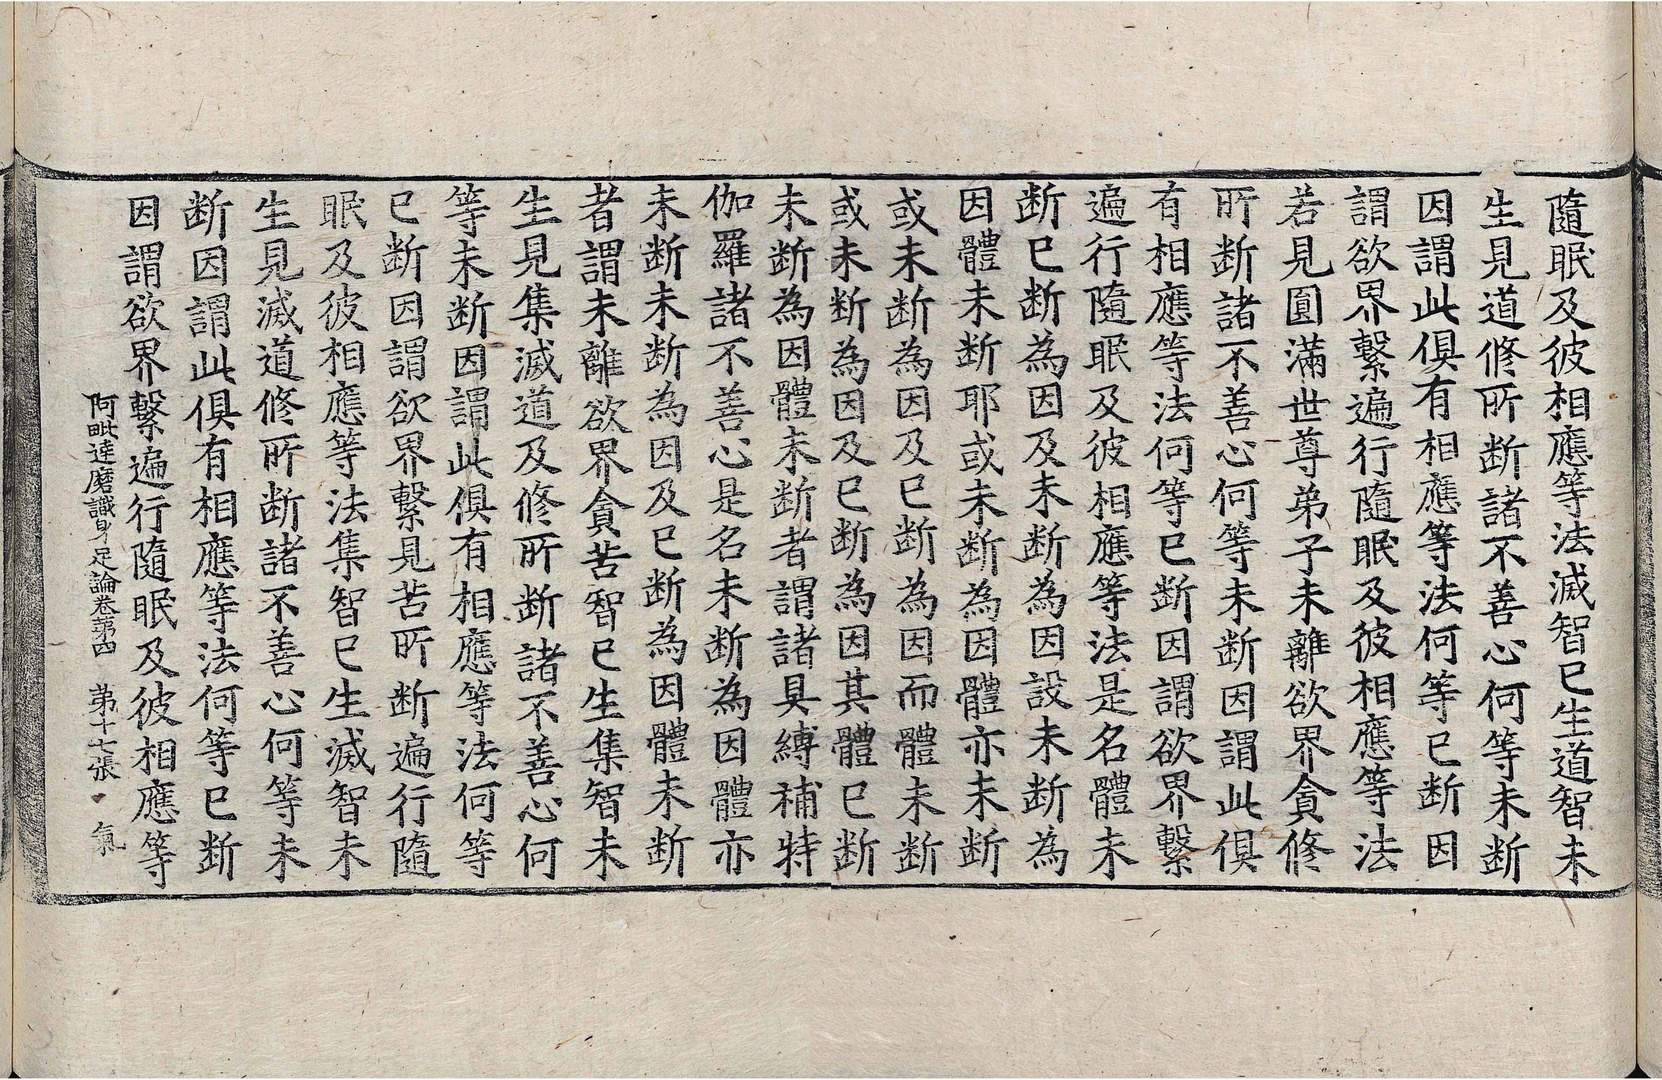 隨眠及彼相應等法滅智已生道智未
生見道修所断諸不善心何等未断
因謂此俱有相應等法何等已断因
謂欲界繫遍行隨眠及彼相應等法
若見圓滿世尊弟子未離欲界貪修
所断諸不善心何等未断因謂此俱
有相應等法何等已断因謂欲界繫
遍行隨眠及彼相應等法是名體未
断已断為因及未断為因設未断為
因體未断耶或未断為因體亦未断
或未断為因及已断為因而體未断
或未断為因及已断為因其體已断
未断為因體未断者謂諸具縛補特
伽羅諸不善心是名未断為因體亦
未断未断為因及已断為因體未断
者謂未離欲界貪苦智已生集智未
生見集滅道及修所断諸不善心何
等未断因謂此俱有相應等法何等
已断因謂欲界繫見苦所断遍行隨
眠及彼相應等法集智已生滅智未
生見滅道修所断諸不善心何等未
断因謂此俱有相應等法何等已断
因謂欲界繫遍行隨眠及彼相應等
阿毗達磨識身足論卷第四 第十七張 氣